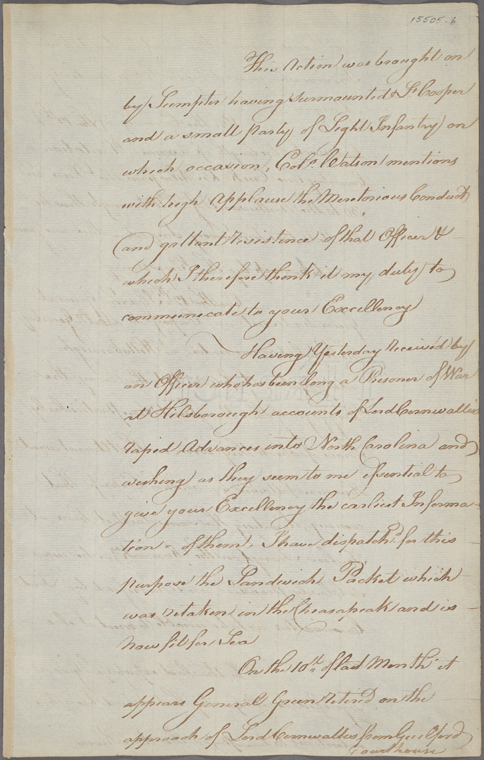 15505.b
This Action was brought on
by Sumpter having surrounded Lt Cooper
and a small Party of Light Infantry on
which occasion, Colo. Watson mentions
with high Applause the Meretorious Conduct
and gallant resistence of that Officer &
which I therefore think it my duty to
communicate to your Excellency
Having Yesterday received by
an Officer who has been long a Prisoner of War
at Hilsborough accounts of Lord Cornwallis's
rapid Advances into North Carolina and
wishing as they seem to me essential to
give your Excellency the earliest Informa-
tion of them, I have dispatchd. for this
purpose the Sandwich Packet which
was retaken in the Cheasapeak and is
now fit for Sea
On the 10th. of last Month it
appears General Green retired on the
approach of Lord Cornwallis from Guilford
Courthouse